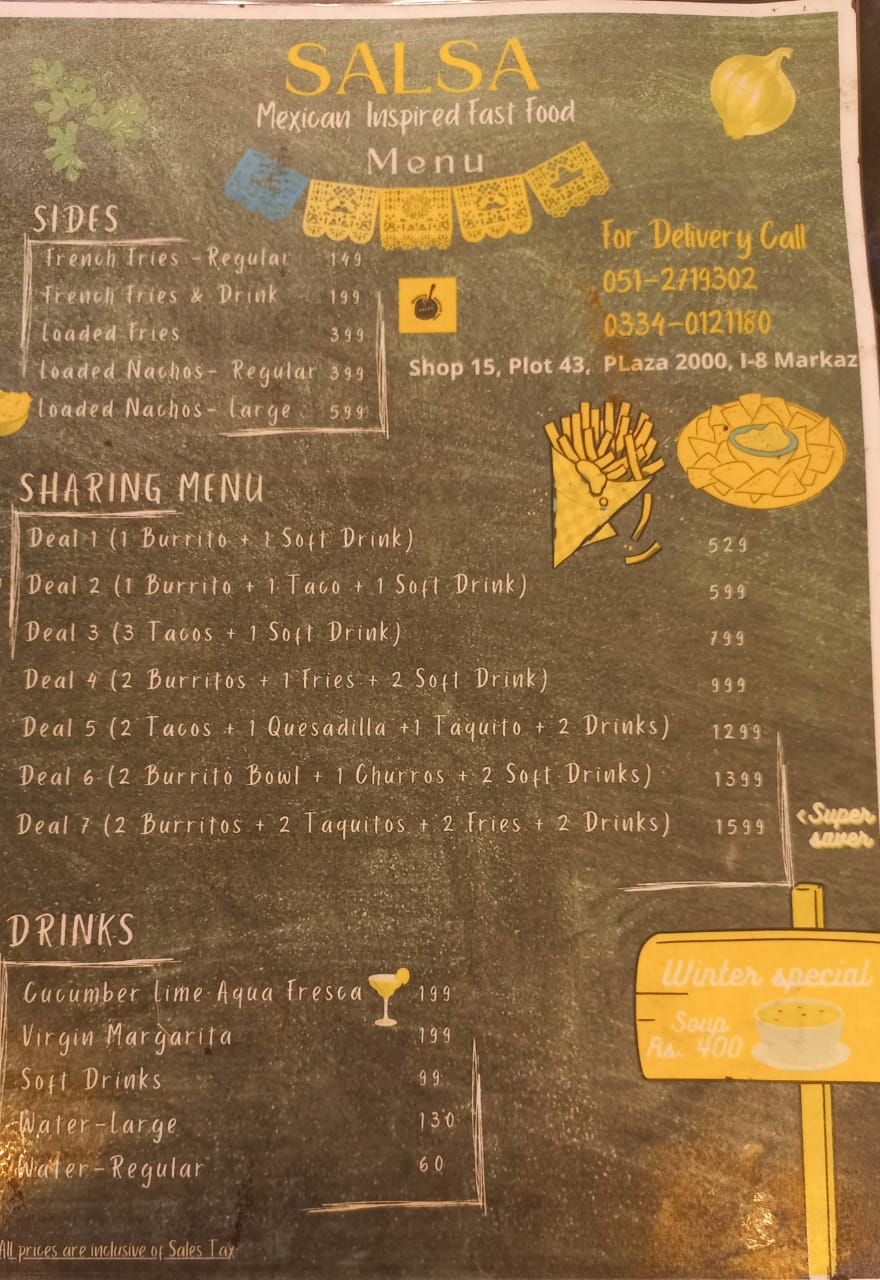 SALSA
Mexican Inspired Fast Food
Menu
SIDES
French Fries - Regular 149
French Fries & Drink 199
Loaded Fries 399
Loaded Nachos- Regular 399
Loaded Nachos- Large 599
For Delivery Call
051-2719302
0334-0121180
Shop 15, Plot 43, PLaza 2000, I-8 Markaz
SHARING MENU
Deal 1 (1 Burrito + 1 Soft Drink) 529
Deal 2 (1 Burrito + 1 Taco + 1 Soft Drink) 599
Deal 3 (3 Tacos + 1 Soft Drink) 799
Deal 4 (2 Burritos + 1 Fries + 2 Soft Drink) 999
Deal 5 (2 Tacos + 1 Quesadilla +1 Taquito + 2 Drinks) 1299
Deal 6 (2 Burrito Bowl + 1 Churros + 2 Soft Drinks) 1399
Deal 7 (2 Burritos + 2 Taquitos + 2 Fries + 2 Drinks) 1599
<Super
saver
DRINKS
Cucumber Lime Aqua Fresca 199
Virgin Margarita 199
Soft Drinks 99
Water-Large 130
Water-Regular 60
Winter special
Soup
Rs. 400
All prices are inclusive of Sales Tax